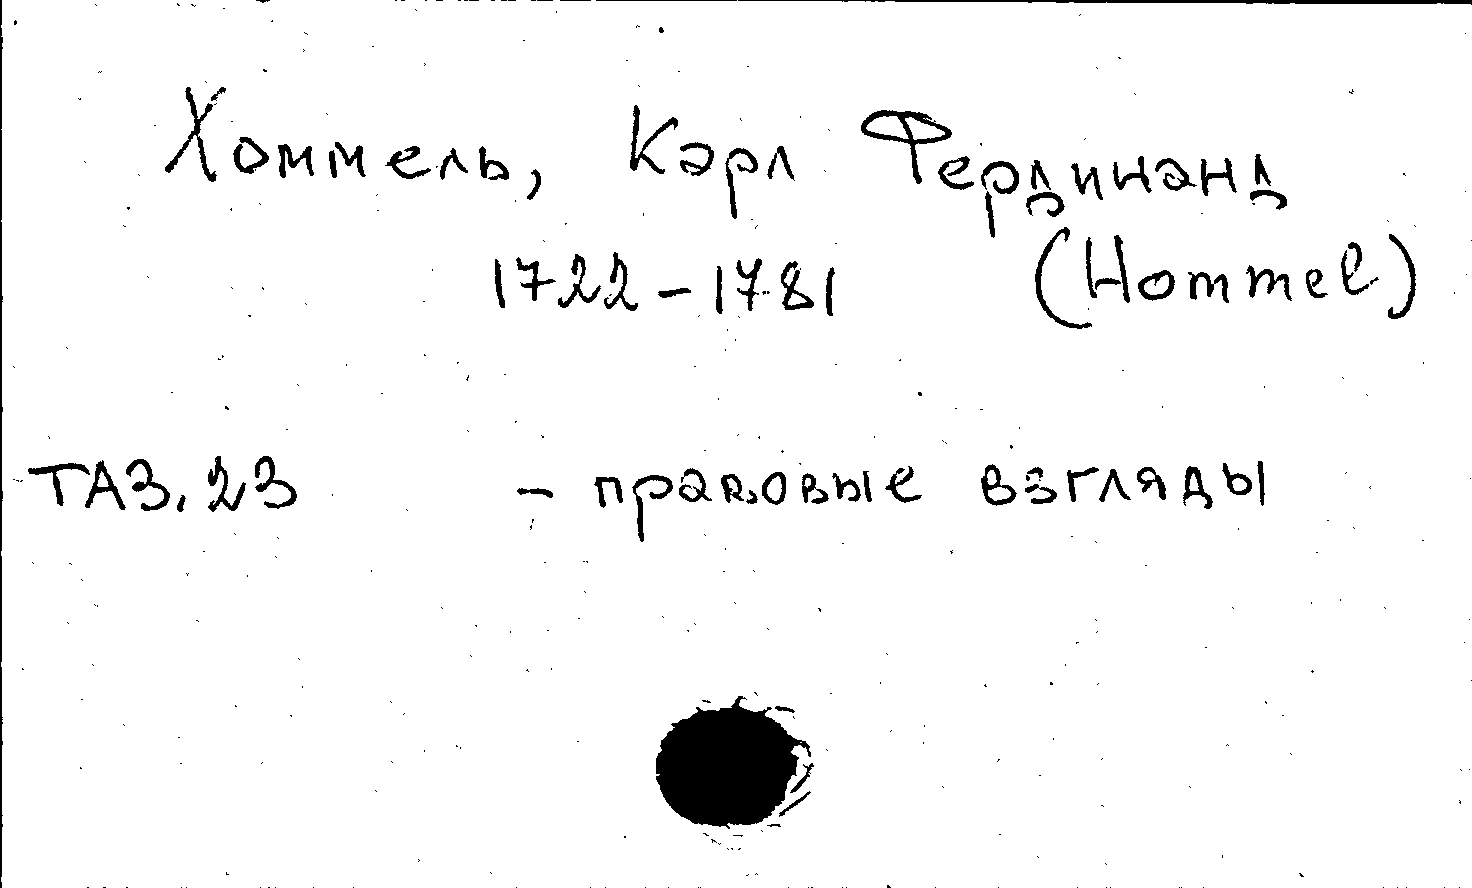 Хоммель, Карл Фердинанд
1722-1781 (Hommel)
ТА3.23 - правовые взгляды